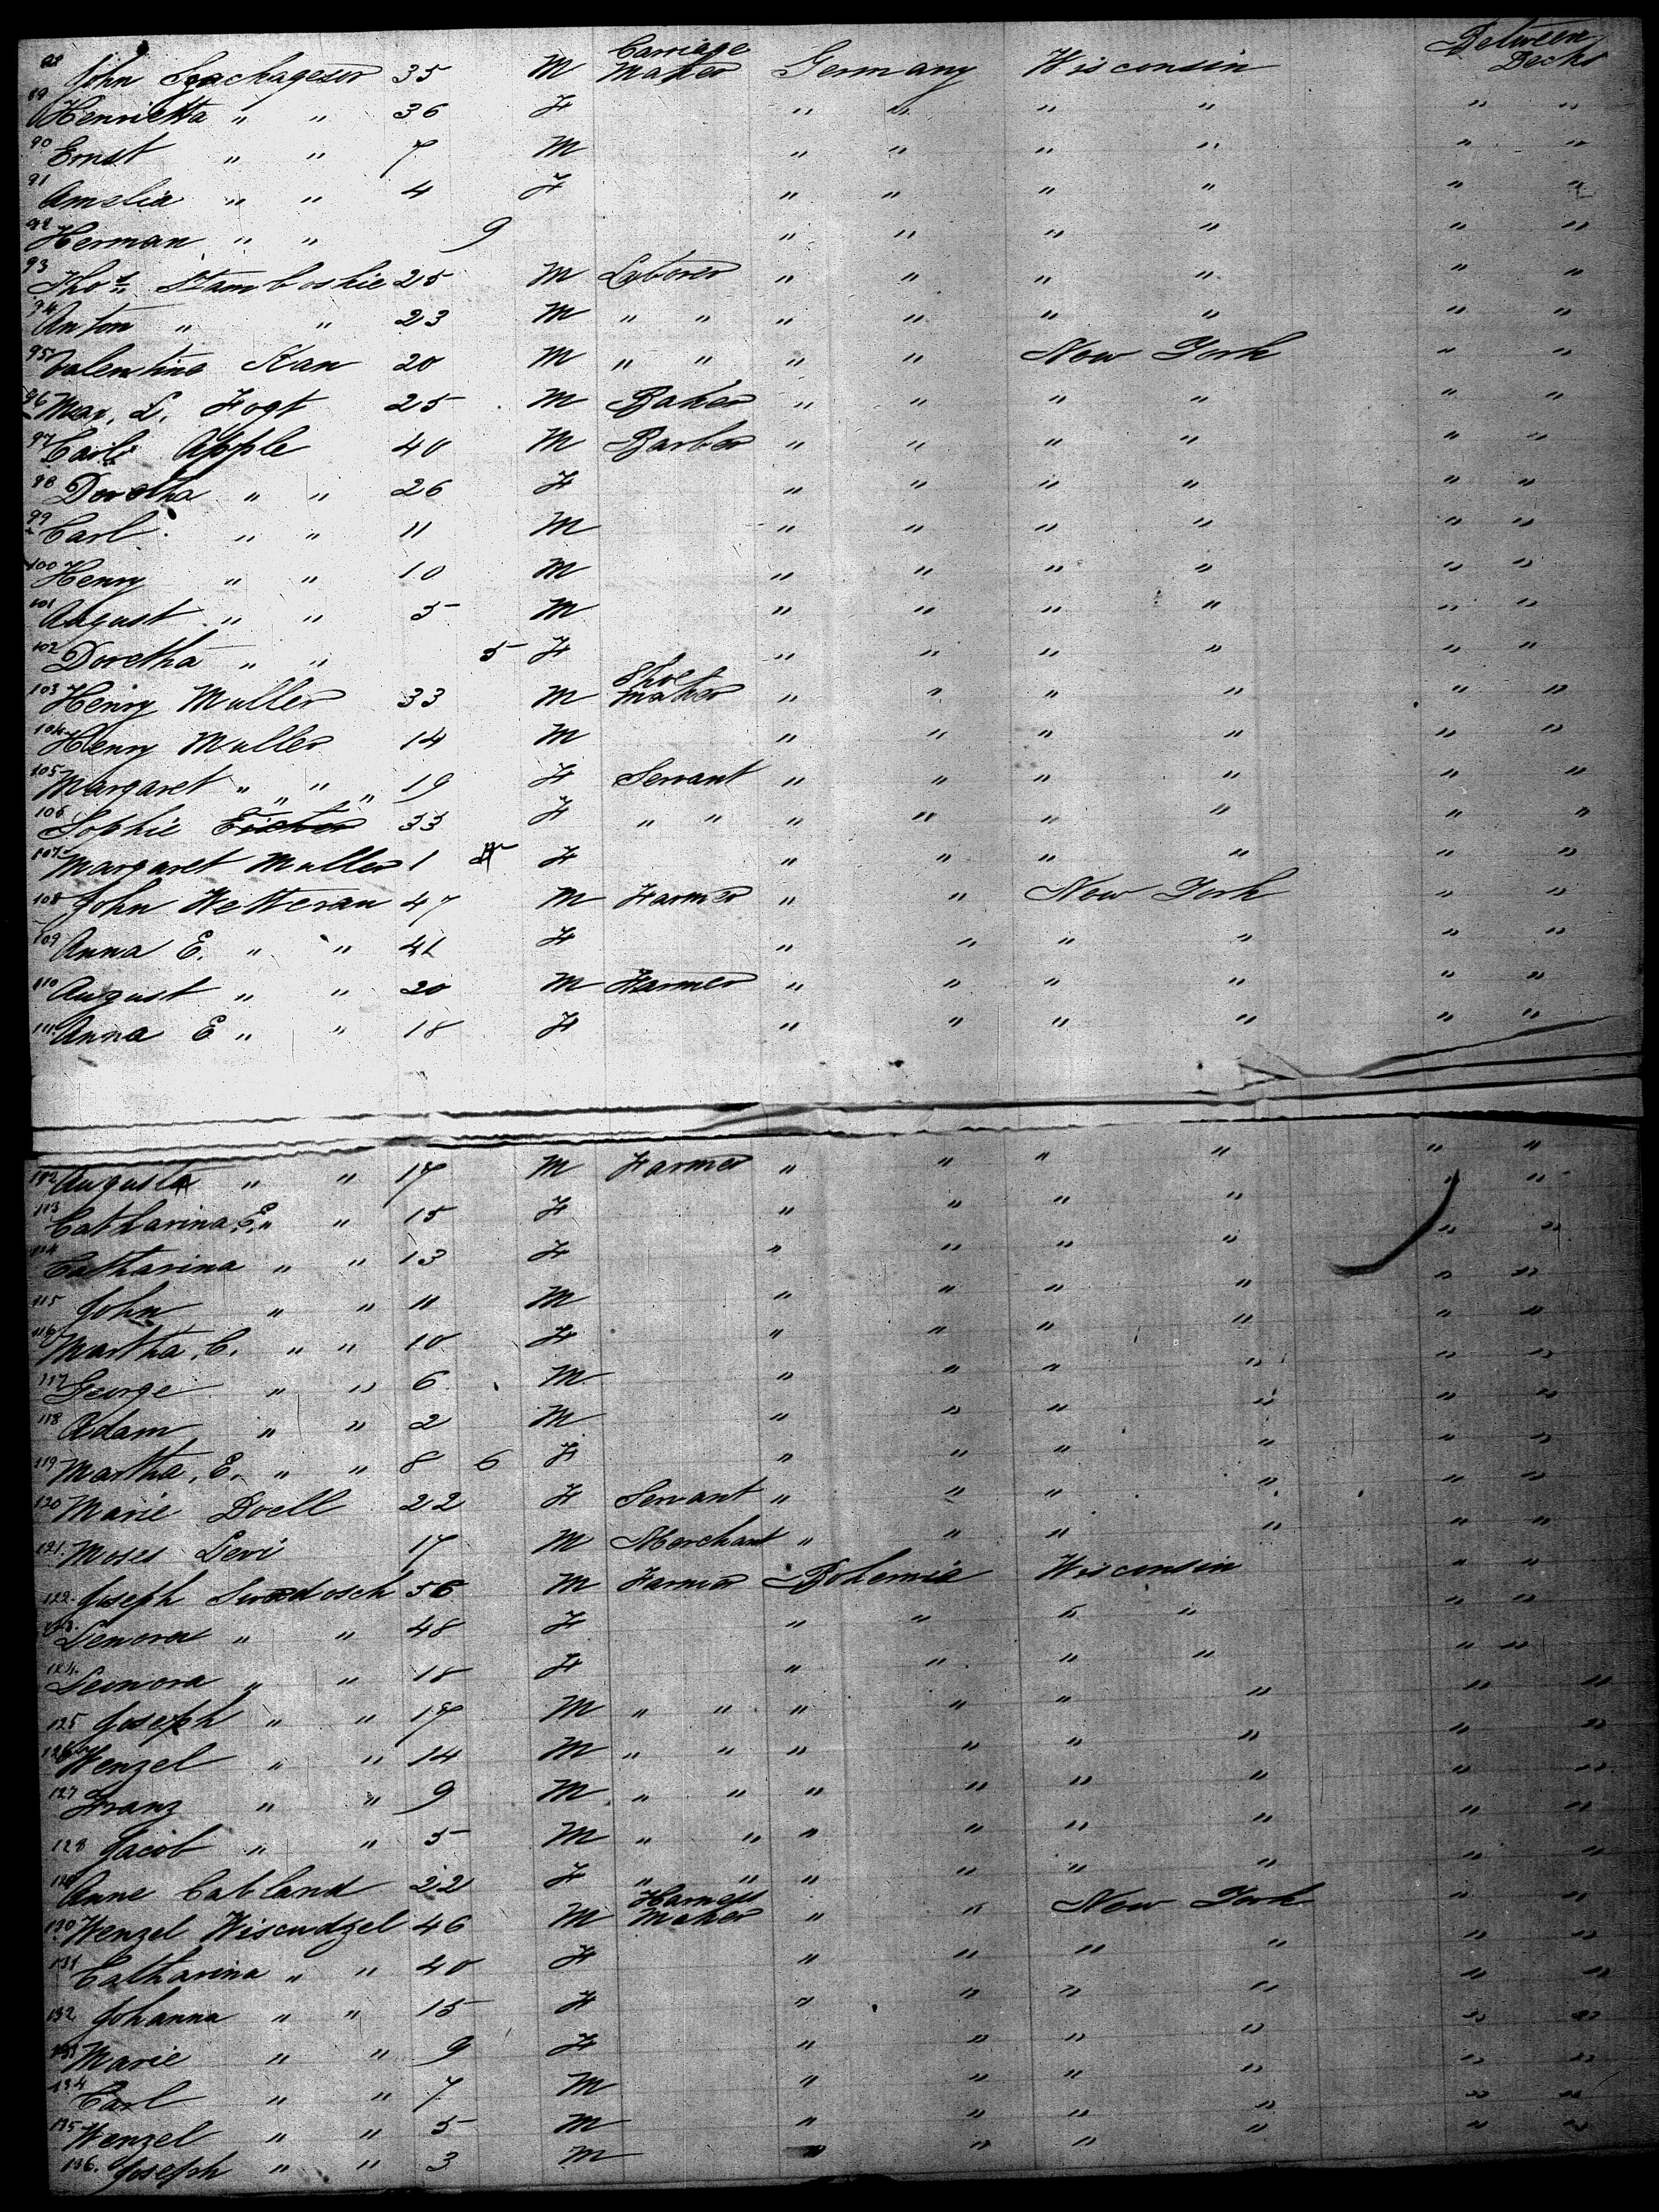 John 35 M Carriage Maker Germany Wisconsin Between Decks
89 Henrietta " " 36 F " " " " " "
90 Ernst " " 7 M " " " " " "
91 Amelia " " 4 F " " " " " "
92 Herman " " 9 " " " " " "
93 Thos Stamboskie 25 M Laborer " " " " " "
94 Anton " " 23 M " " " " " " " "
95 Valentine Kan 20 M " " " " New York " "
96 Max. L. Fogt 25 M Baker " " " " " "
97 Carl Apple 40 M Barber " " " " " "
98 Doretha " " 26 F " " " " " "
99 Carl " " 11 M " " " " " "
100 Henry " " 10 M " " " " " "
101 August " " 5 M " " " " " "
102 Doretha " " 5 F " " " " " "
103 Henry Muller 33 M Shoe maker " " " " " "
104 Henry Muller 14 M " " " " " "
105 Margaret " " " " 19 F Servant " " " " " "
106 Sophie 33 F " " " " " " " "
107 Margaret Muller 1 F " " " " " "
108 John Wetterau 47 M Farmer " " New York " "
109 Anna E. " " 41 F " " " " " "
110 August " " 20 M Farmer " " " " " "
111 Anna E " " 18 F " " " " " "
112 August " " 17 M Farmer " " " " " "
113 Catharina E. " " 15 F " " " " " "
114 Catharina " " 13 F " " " " " "
115 John " " 11 M " " " " " "
116 Martha. C. " " 10 F " " " " " "
117 George " " 6 M " " " " " "
118 Adam " " 2 M " " " " " "
119 Martha. E. " " 8 6 F " " " " " "
120 Marie Doell 22 F Servant " " " " " "
121. Moses Levi 17 M Merchant " " " " " "
122. Joseph Swadosch 56 M Farmer Bohemia Wisconsin " "
123. Lenora " " 48 F " " " " " "
124. Leonora " " 18 F " " " " " "
125 Joseph " " 17 M " " " " " " " "
126 Wenzel " " 14 M " " " " " " " "
127 Franz " " 9 M " " " " " " " "
128 Jacob " " 5 M " " " " " " " "
129 Anne Cabland 22 F " " " " " " " "
130 Wenzel Wiscudzel 46 M Harness Maker " " New York " "
131 Catharina " " 40 F " " " " " "
132 Johanna " " 15 F " " " " " "
133 Marie " " 9 F " " " " " "
134 Carl " " 7 M " " " " " "
135 Wenzel " " 5 M " " " " " "
136. Joseph " " 3 M " " " "